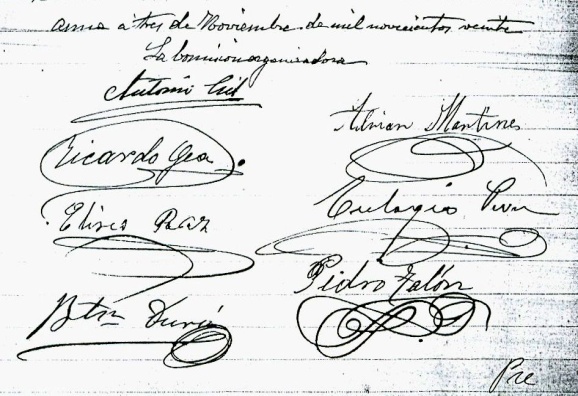 a tres de Noviembre de mil novecientos veinte
La Comisión organizadora
Antonio Gil
Adrian Martines
Ricardo Gea
Eulogio
Elises Paz
Pidro
Pre